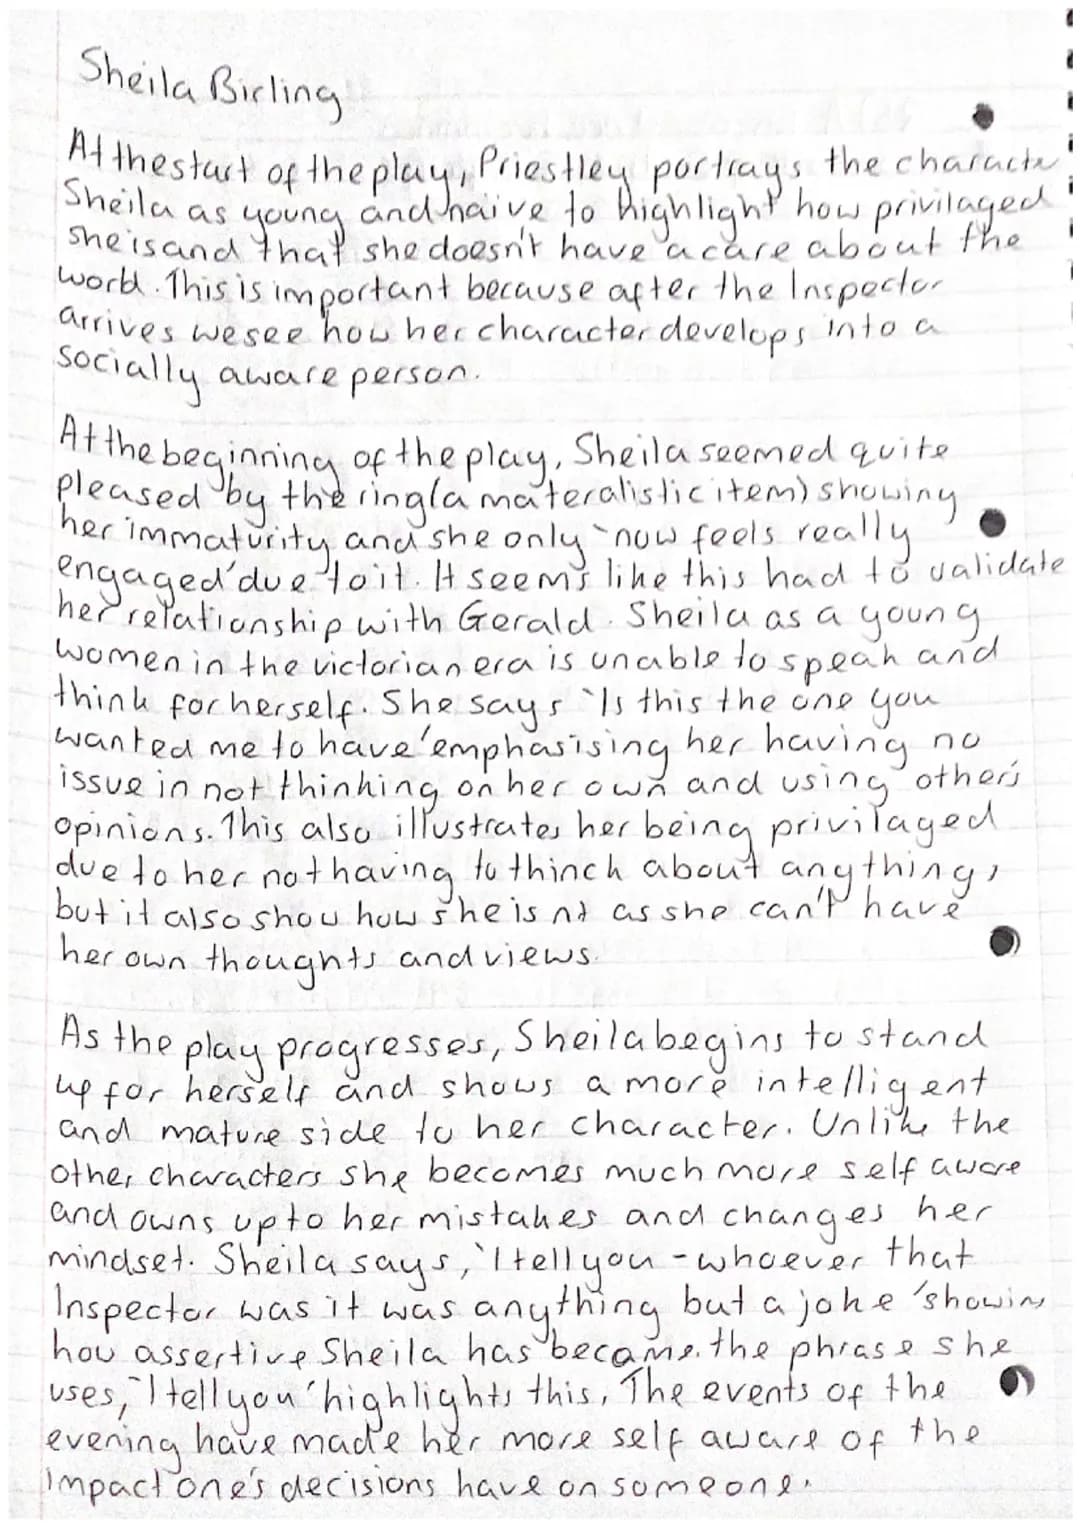 Sheila Birling
At the start of the play, Priestley portrays the characte
Sheila as young and naive to highlight how privilaged
she is and that she doesn't have a care about the
world. This is important because after the Inspector
arrives we see how her character develops into a
socially aware person.
At the beginning of the play, Sheila seemed quite
pleased by the ring (a materalistic item) showing
her immaturity and she only 'now feels really
engaged' due to it. It seems like this had to validate
her relationship with Gerald. Sheila as a young
women in the victorian era is unable to speak and
think for herself. She says 'Is this the one you
wanted me to have' emphasising her having no
issue in not thinking on her own and using other's
opinions. This also illustrates her being privilaged
due to her not having to thinch about anything,
but it also show how she is nt as she can't have
her own thoughts and views.
As the play progresses, Sheila begins to stand
up for herself and shows a more intelligent
and mature side to her character. Unlike the
other characters she becomes much more self aware
and owns up to her mistakes and changes her
mindset. Sheila says, 'I tell you - whoever that
Inspector was it was anything but a joke' showin
how assertive Sheila has became. the phrase she
uses, 'I tell you' highlights this, The events of the
evening have made her more self aware of the
impact one's decisions have on someone.